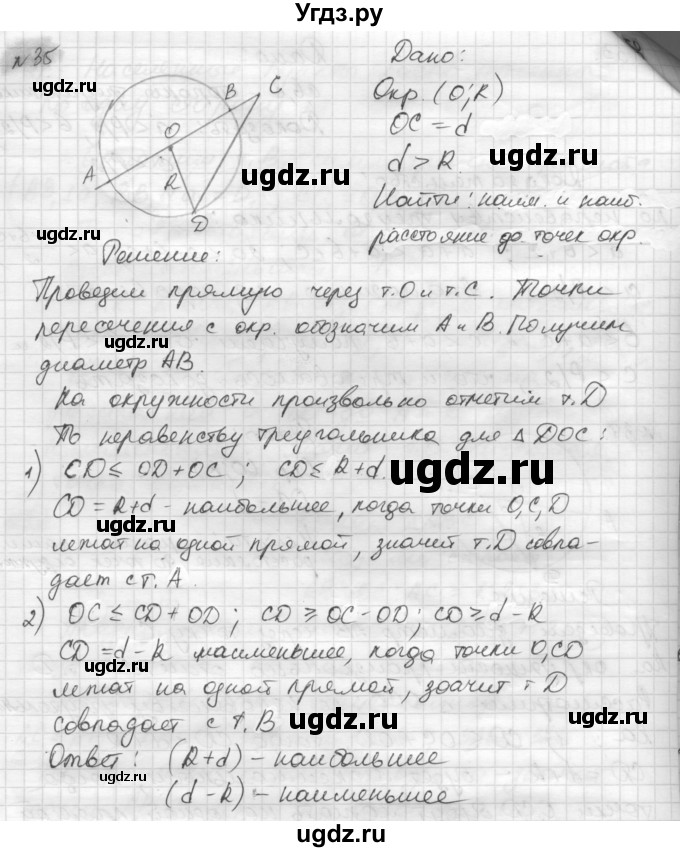 Угдз.ру
№ 35
Дано:
Окр. (O; R)
OC = d
d > R.
Найти: наим. и наиб.
расстояние до точек окр.
A
O
B
C
R
D
Решение:
Проведем прямую через т. O и т. C. Точки
пересечения с окр. обозначим A и B. Получим
диаметр AB.
На окружности произвольно отметим т. D
По неравенству треугольника для △ DOC:
1) CD ≤ OD + OC; CD ≤ R + d.
CD = R + d - наибольшее, когда точки O, C, D
лежат на одной прямой, значит т. D совпа-
дает с т. A.
2) OC ≤ CD + OD; CD ≥ OC - OD; CD ≥ d - R
CD = d - R наименьшее, когда точки O, CD
лежат на одной прямой, значит т D
совпадает с т. B
Ответ: (R + d) - наибольшее
(d - R) - наименьшее
ugdz.ru
ugdz.ru
ugdz.ru
ugdz.ru
ugdz.ru
ugdz.ru
ugdz.ru
ugdz.ru
ugdz.ru
ugdz.ru
ugdz.ru
ugdz.ru
ugdz.ru
ugdz.ru